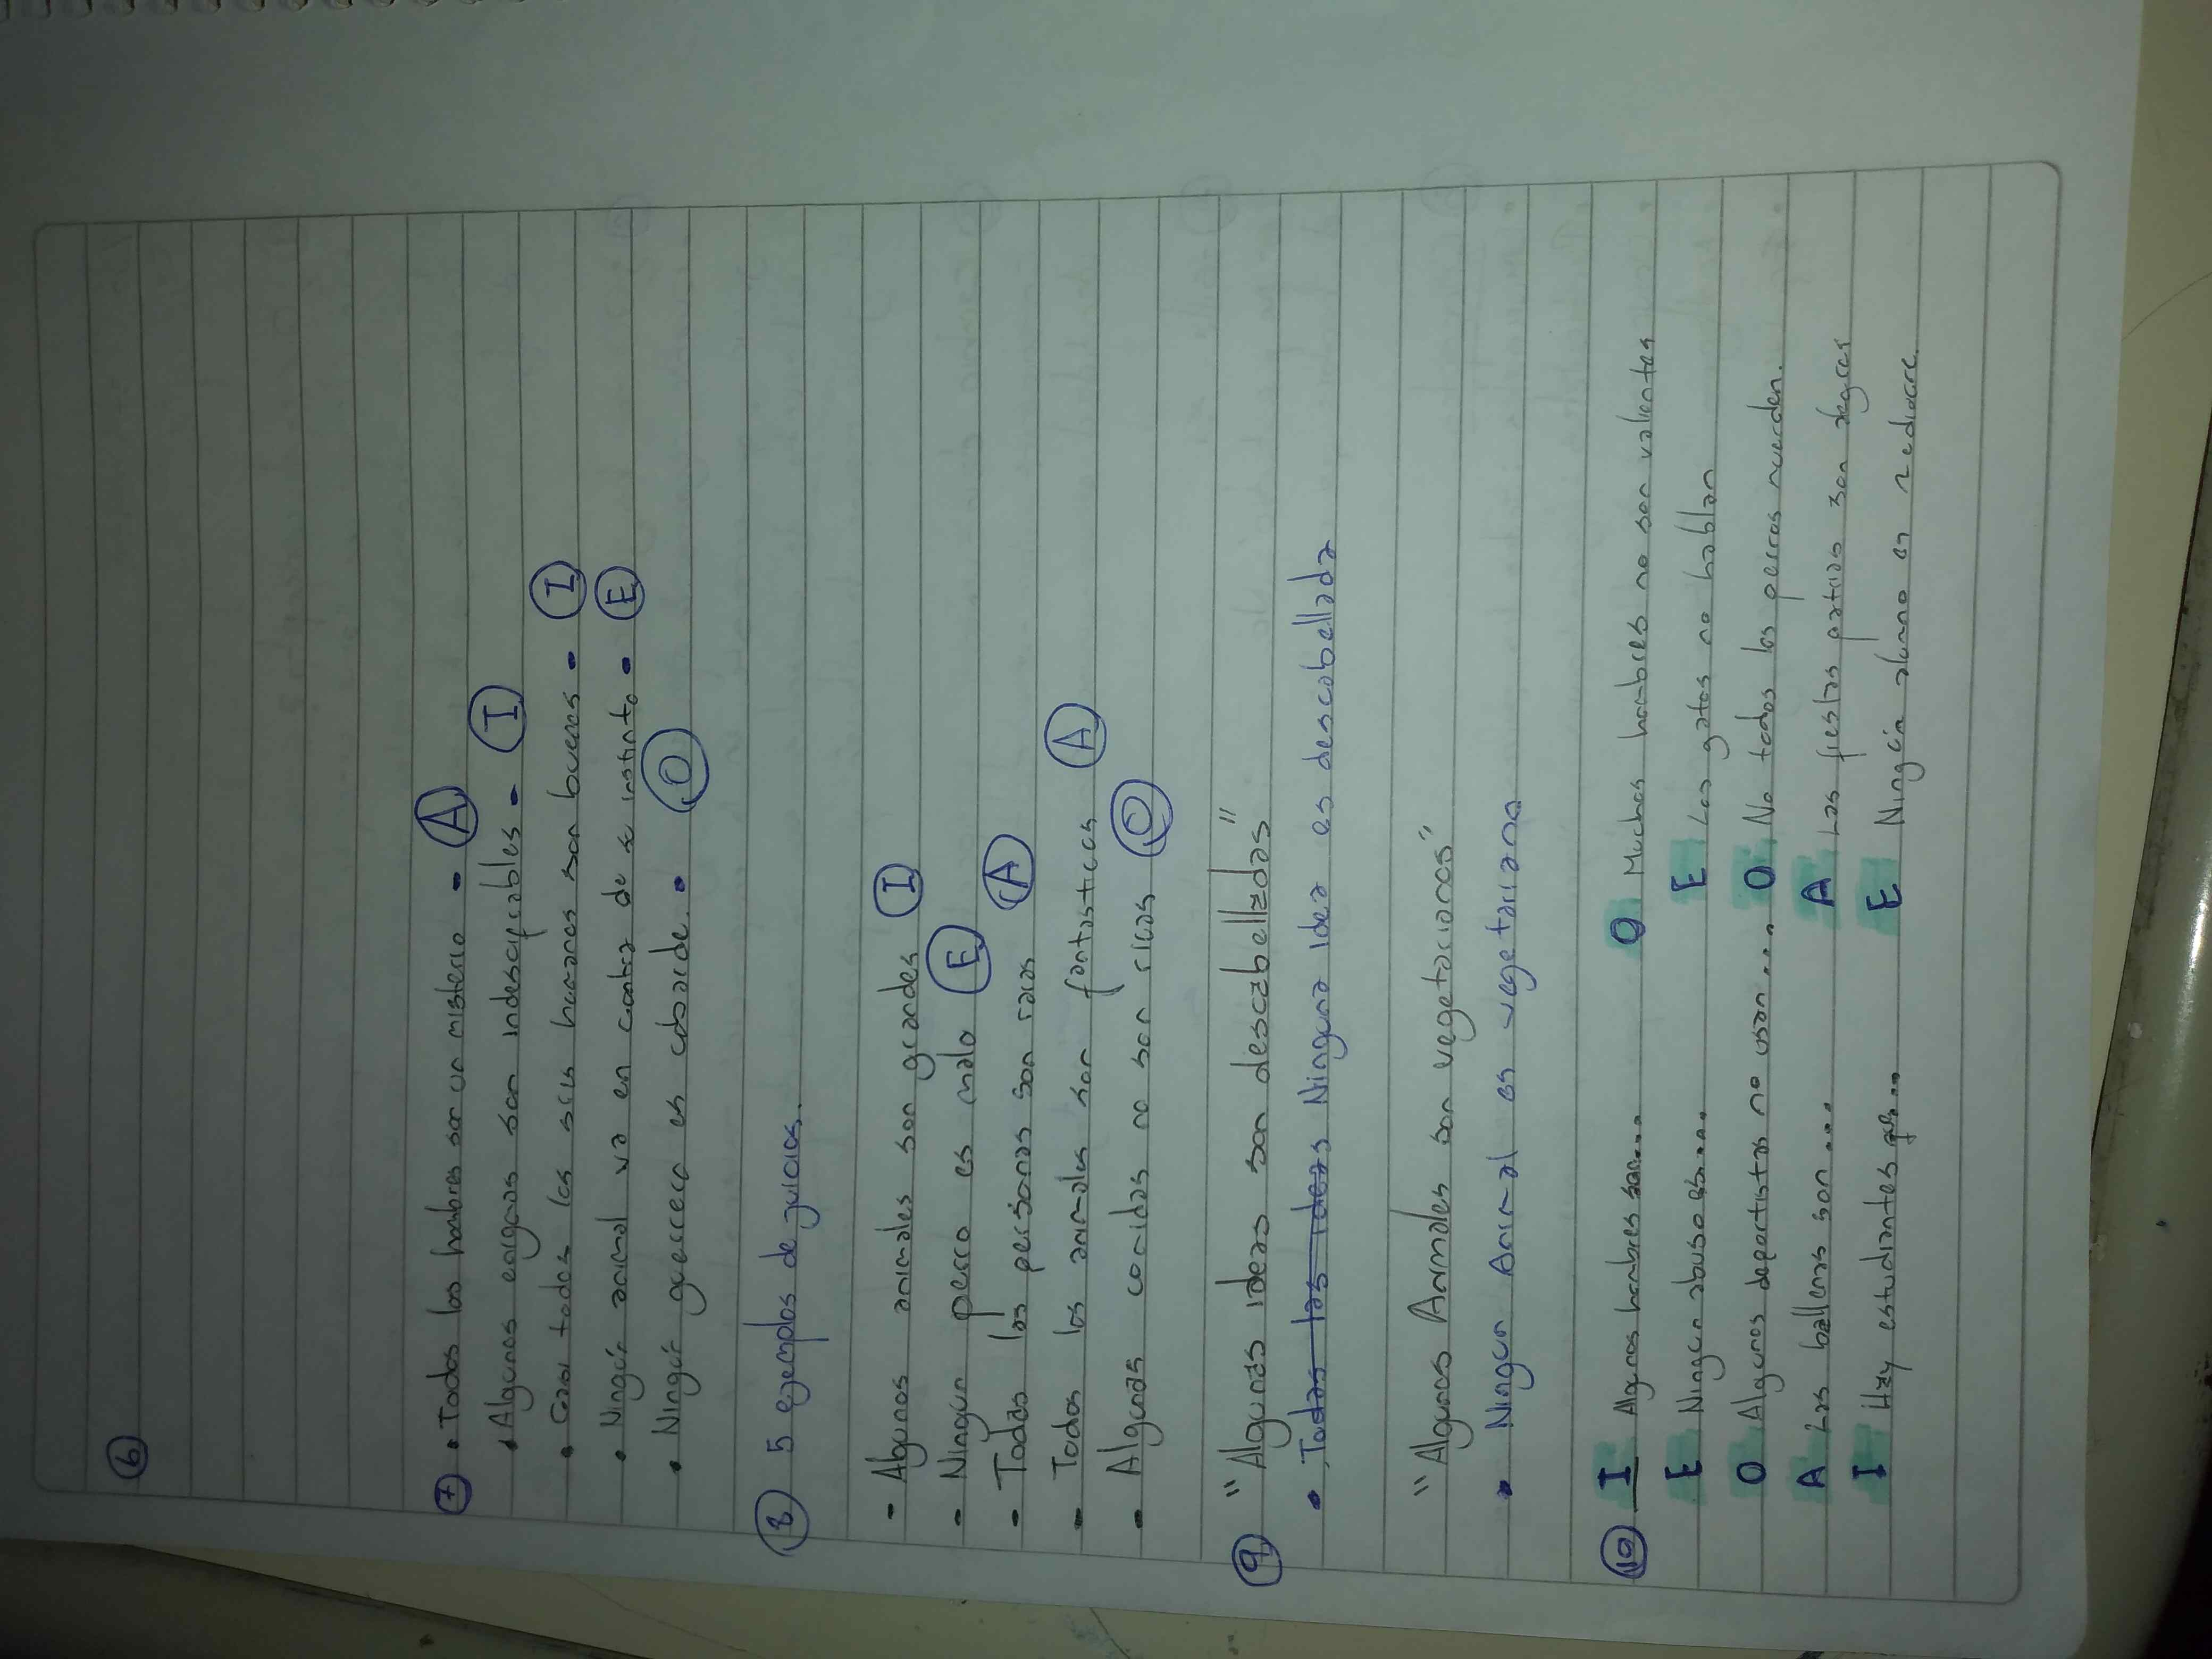 6
7 • Todos los hombres son un misterio - A
• Algunos enigmas son indescifrables - I
• Casi todos los seres humanos son buenos - I
• Ningún animal va en contra de su instinto - E
• Ningún guerrero es cobarde. - O
8 5 ejemplos de juicios.
- Algunos animales son grandes I
- Ningun perro es malo E
- Todas las personas son raras A
- Todos los animales son fantasticos A
- Algunas comidas no son ricas O
9 "Algunas ideas son descabelladas"
• Todas las ideas Ninguna idea es descabellada
"Algunos Animales son vegetarianos"
• Ningun Animal es vegetariano
10 I Algunos hombres son.... O Muchos hombres no son valientes
E Ningun abuso es.... E Los gatos no hablan
O Algunos deportistas no usan.... O No todos los perros muerden.
A Las ballenas son.... A Las fiestas patrias son alegres
I Hay estudiantes que... E Ningún alumno es mediocre.